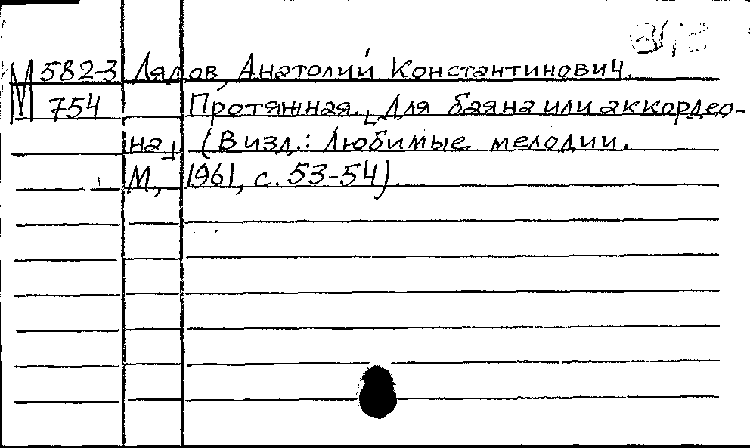 М 582-3 Лядов, Анатолий Константинович.
754 Протяжная. [Для баяна или аккордео-
на] (В изд.: Любимые мелодии.
М., 1961, с. 53-54)